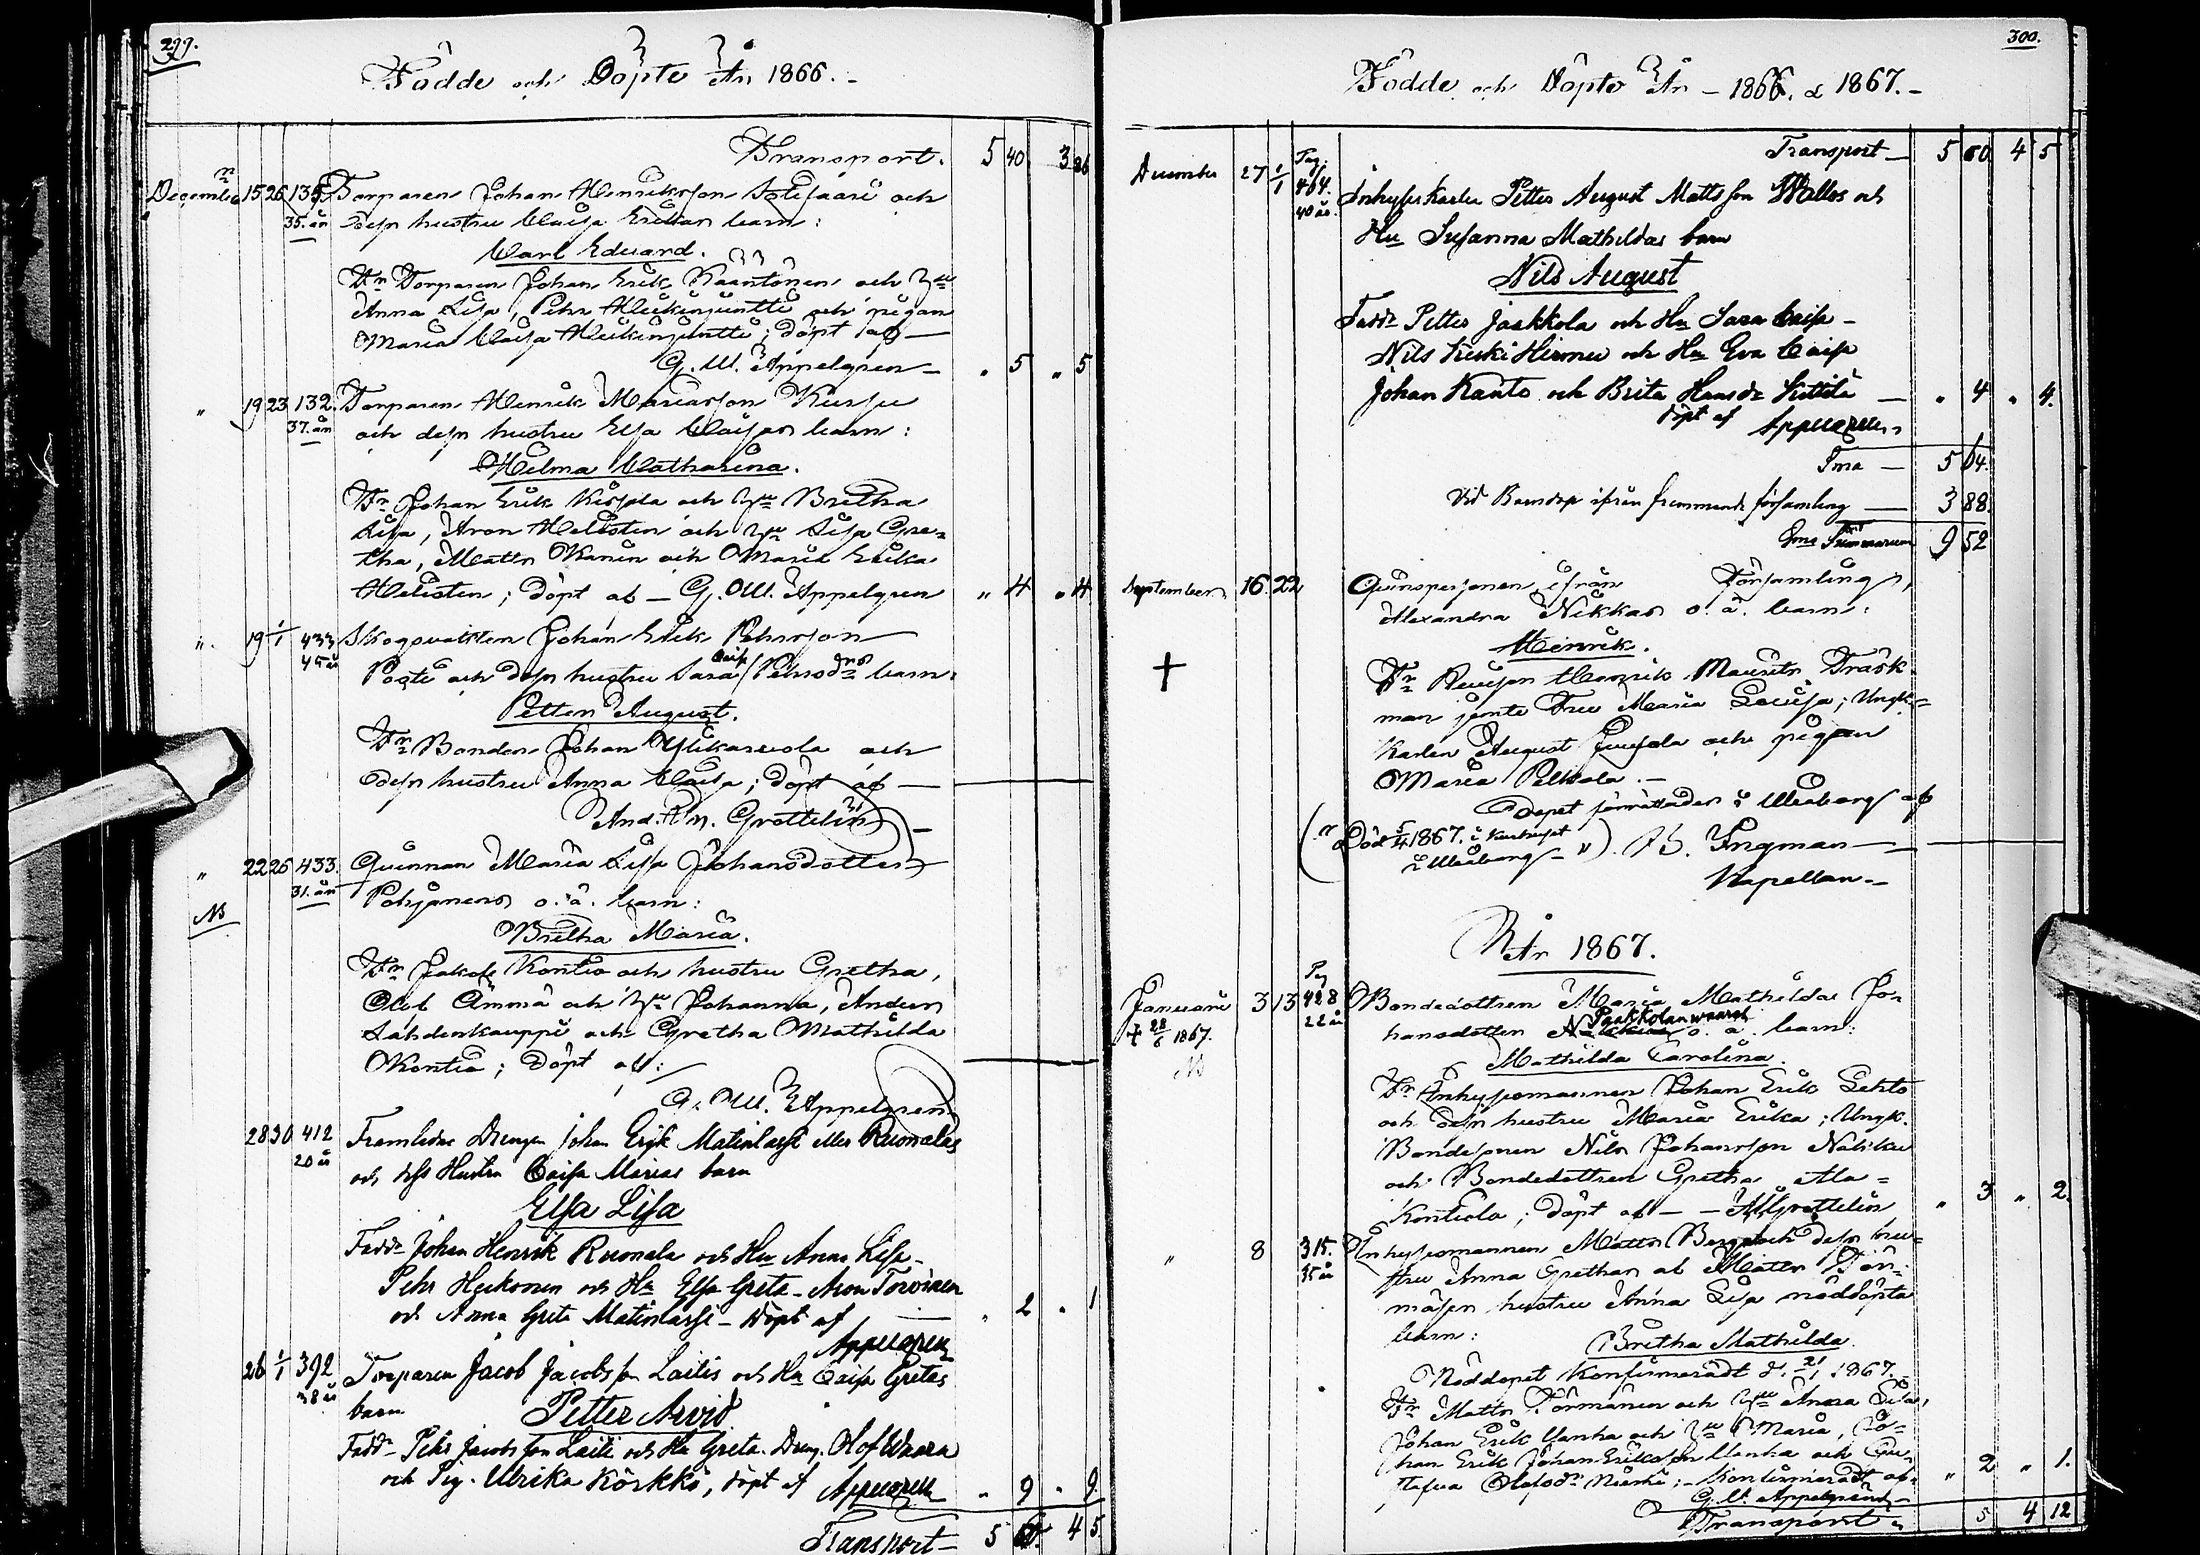 299.
Födde och Döpte År 1866.-
Transport. 5 40 3 86
December 15 26 135. Torparen Johan Henriksson och
35. år dess hustru Caisa Erikas barn:
Carl Eduard.
Fr. Torparen Johan Erik Kaantonen och Hu
Anna Lisa, Pehr Heikinjuntti och pigan
Maria Caisa Heikinjuntti; döpt af —
G. W. Appelgren — „ 5 „ 5
„ 19 23 132. Torparen Henrik
37. år och dess hustru Elsa Caisas barn:
Hilma Catharina.
Fr. Johan Erik och Hu Bretha
Lisa, Aron Helisten och Hu Lisa Gre-
tha, Matts Kanin och Maria Erika
Helisten; döpt af — G. W. Appelgren „ 4 „ 4
„ 19 1/1 433 Skogsvakten Johan Erik Pehrsson
45 år Posti och dess hustru Sara Caisa Pehrsdrs barn:
Petter August.
Fr. Bonden Johan och
dess hustru Anna Caisa; döpt af —
And. Joh. Grettelin —
„ 22 26 433. Qvinnan Maria Lisa Johansdotter
31. år Pohjanens o. ä. barn:
NB
Bretha Maria.
Fr. Jakob Kontio och hustru Gretha,
Olof Ämmä och Hu Johanna, Anders
Lahdenkauppi och Gretha Mathilda
Kontio; döpt af:
G. W. Appelgren
28 30 412 Framlidne Drengen Johan Erik Matinlassi eller Ruonalas
20 år och dess Hustru Caisa Marias barn
Elsa Lisa
Fadd. Johan Henrik Ruonala och Hu Anna Lisa -
Pehr Heikonen och Hu Elsa Greta - Aron Torvinen
och Anna Greta Matinlassi - döpt af — „ 2 „ 1
Appelgren
26 1/1 392 Torparen Jacob Jacobsson Laitis och Hu Caisa Gretas
38 år barn Petter Arvid
Fadd - Pehr Jacobsson Laiti och Hu Greta. Dreng. Olof Waara
och Pig. Ulrika Körkkö, döpt af Appelgren „ 9 „ 9.
Transport — 5 60. 4 5
300.
Födde och Döpte År - 1866. & 1867.-
Transport — 5 60 4 5
December 27 1/1 Pag. 404. Inhyses karlen Petter August Mattsson Wallos och
40 år. Hu Susanna Mathildas barn
Nils August
Fadd. Petter Jaakkola och Hu Sara Caisa -
Nils och Hu Eva Caisa
Johan Kanto och Brita Hansdr Kittilä — „ 4 „ 4.
döpt af Appelgren
Sma — 5 64.
Vid Barndop ifrån fremmande församling — 3 88.
Sma Summarum 9 52
September 16. 22 Qvinspersonen ifrån Församling,
Alexandra Nikkas o. ä. barn:
Henrik.
+ Fr. Henrik Maurits Träsk-
man jemte Fru Maria Lovisa; Ungk-
karlen August Junjola och pigan
Maria Pelkola. -
Dopet förrättades i Uleåborg af
(„ Död 5/4 1867. i
i Uleåborg - „). B. Ingman —
Kapellan. -
År 1867.
Januari 3 13 Pag 428 Bondedottren Maria Mathilda Jo-
22 år hansdotter Paakkolanwaara o. ä. barn:
+ 28/6 1867.
NB
Mathilda Carolina.
Fr. Inhysesmannen Johan Erik Lehto
och dess hustru Maria Erika; Ungk.
Bondesonen Nils Johansson
och Bondedottren Gretha Ala-
Kontiola; döpt af — — Grettelin „ 3 „ 2.
„ 8 315. Inhysesmannen Matts Berg och dess hu-
35 år stru Anna Grethas af Matts
hustru Anna Lisa nöddöpta
barn: Bretha Mathilda.
Nöddopet Konfirmeradt d. 21/1 1867.
Fr. Matts Törmänen och Hu Anna Lisa,
Johan Erik Vanha och Hu Maria, Jo-
han Erik Johan Eriksson Vanha och Gu-
stafva Olofsdr; - Konfirmeradt af - „ 2 „ 1.
G. W. Appelgren -
Transport - 5 4 12